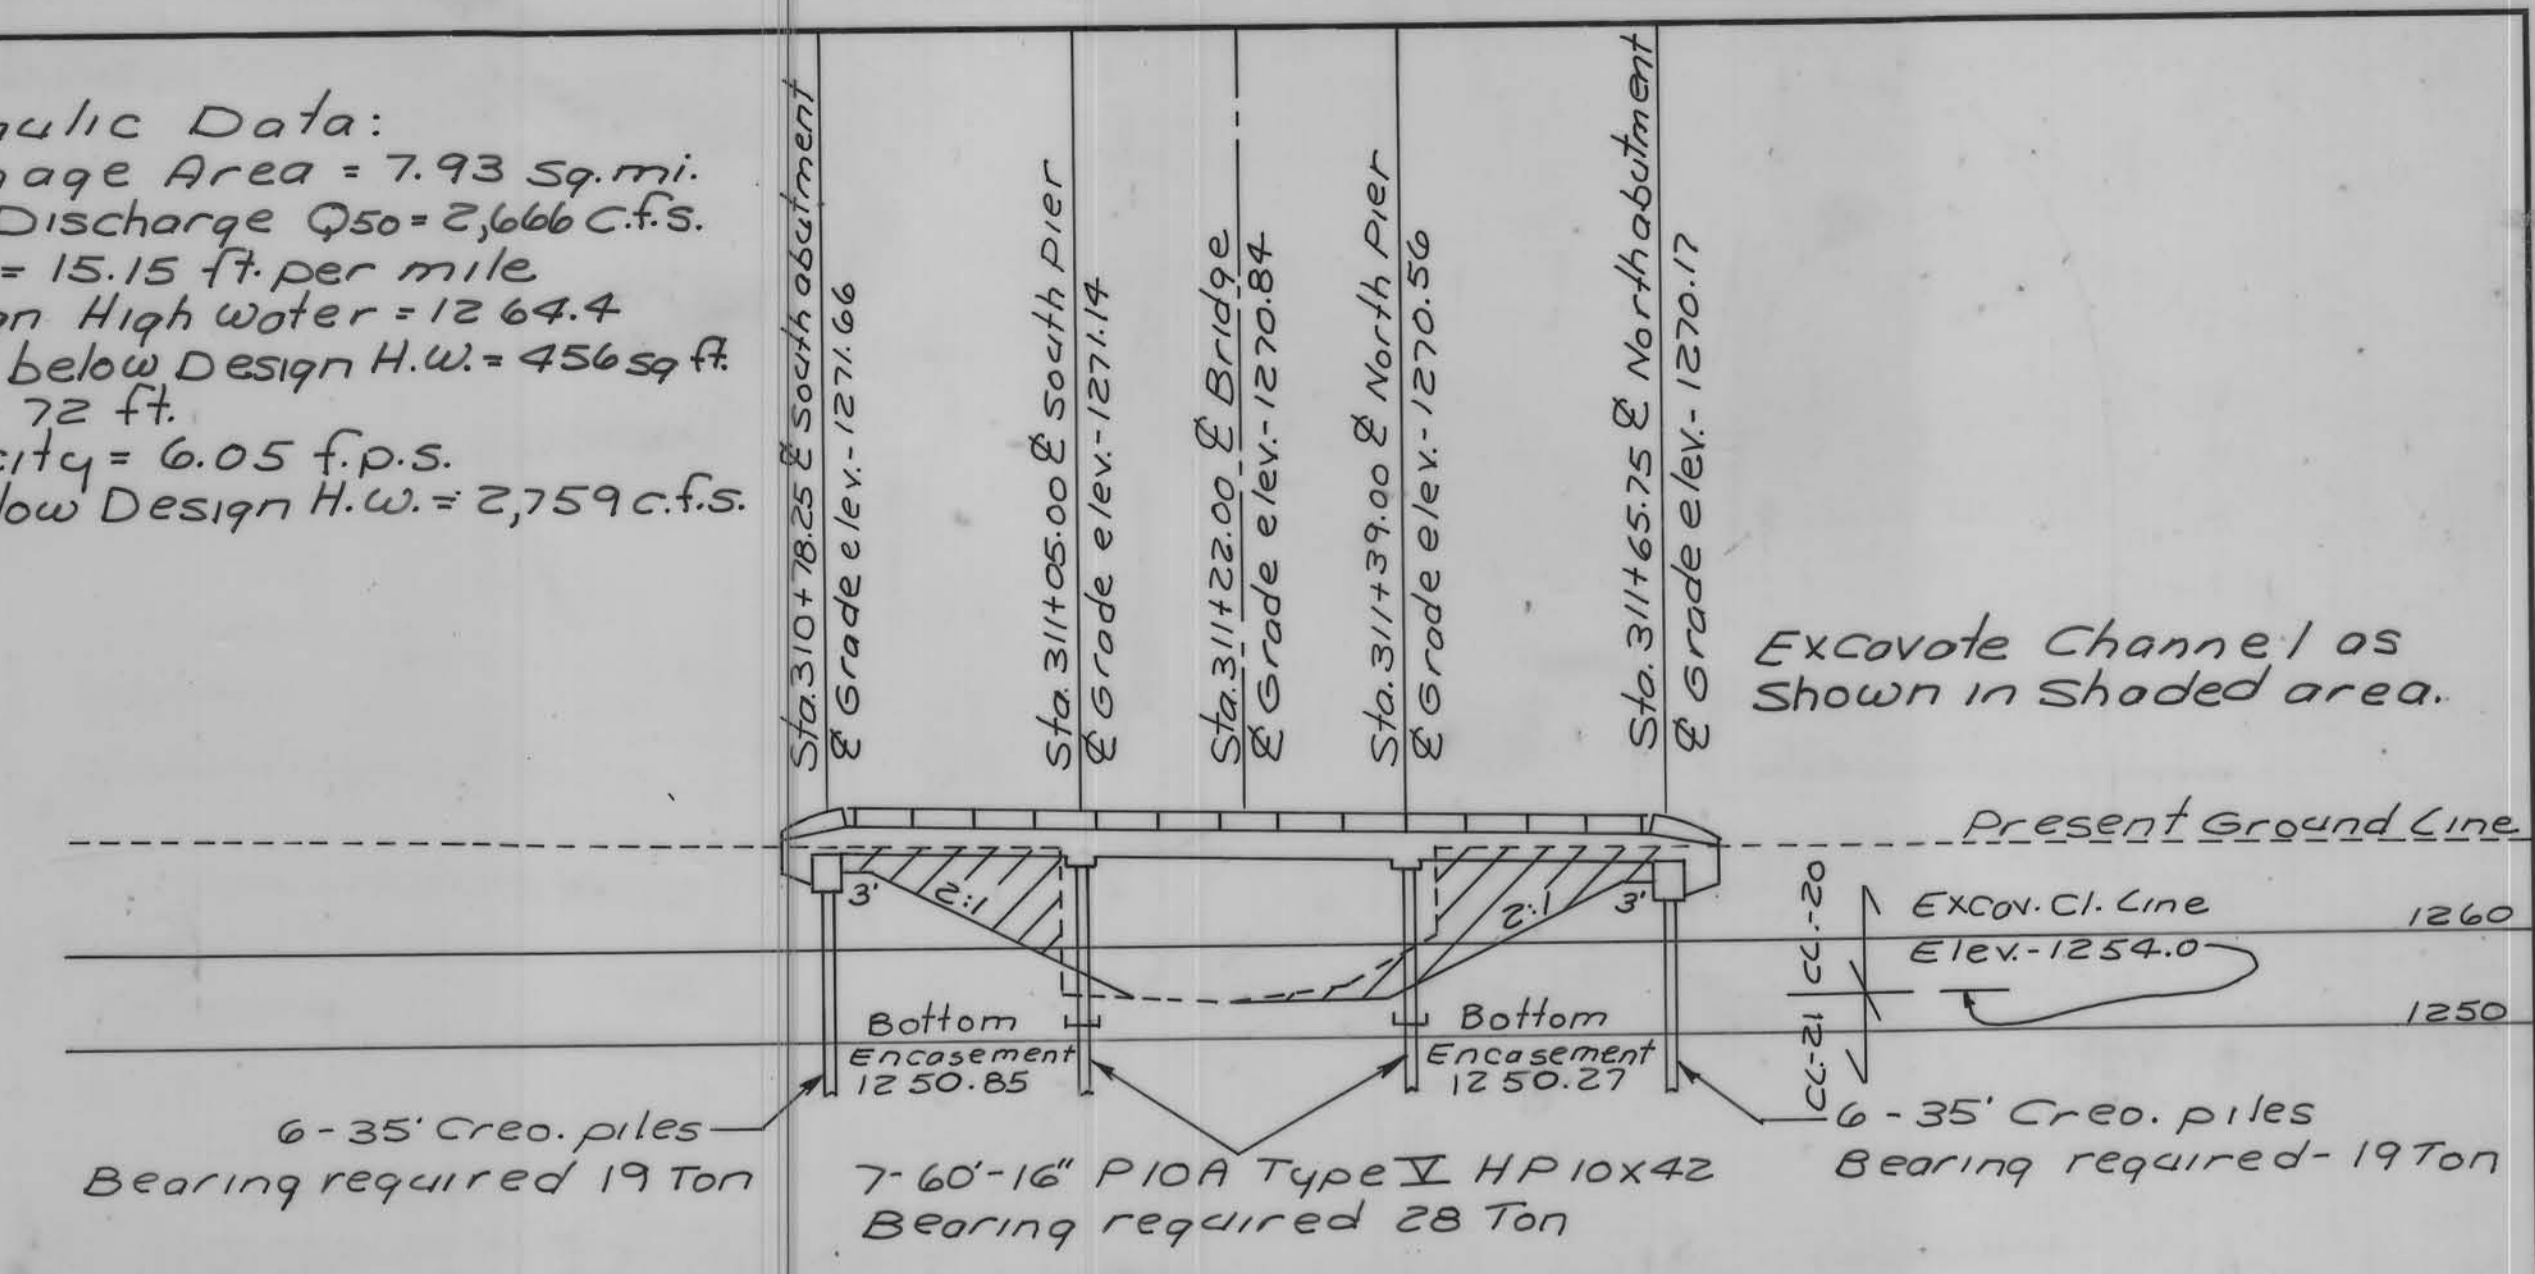 aulic Data:
nage Area = 7.93 Sq.mi.
Discharge Q50 = 2,666 C.f.s.
= 15.15 ft. per mile
gn High water = 1264.4
below Design H.W. = 456 sq ft.
72 ft.
city = 6.05 f.p.s.
low Design H.W. = 2,759 c.f.s.
Sta. 310+78.25 ℄ South abutment
℄ Grade elev.- 1271.66
Sta. 311+05.00 ℄ South Pier
℄ Grade elev.- 1271.14
Sta. 311+22.00 ℄ Bridge
℄ Grade elev.- 1270.84
Sta. 311+39.00 ℄ North Pier
℄ Grade elev.- 1270.56
Sta. 311+65.75 ℄ North abutment
℄ Grade elev.- 1270.17
Excavate Channel as
Shown in Shaded area.
Present Ground Line
3'
2:1
2:1
3'
CL.-20
CL-21
Excav. Cl. Line
Elev.- 1254.0
1260
1250
Bottom
Encasement
1250.85
Bottom
Encasement
1250.27
6-35' Creo. piles
Bearing required 19 Ton
7-60'-16" P10A Type V HP 10x42
Bearing required 28 Ton
6-35' Creo. piles
Bearing required- 19 Ton